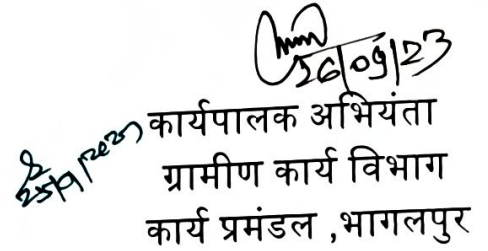 26/09/23
25/9/2023
कार्यपालक अभियंता
ग्रामीण कार्य विभाग
कार्य प्रमंडल ,भागलपुर